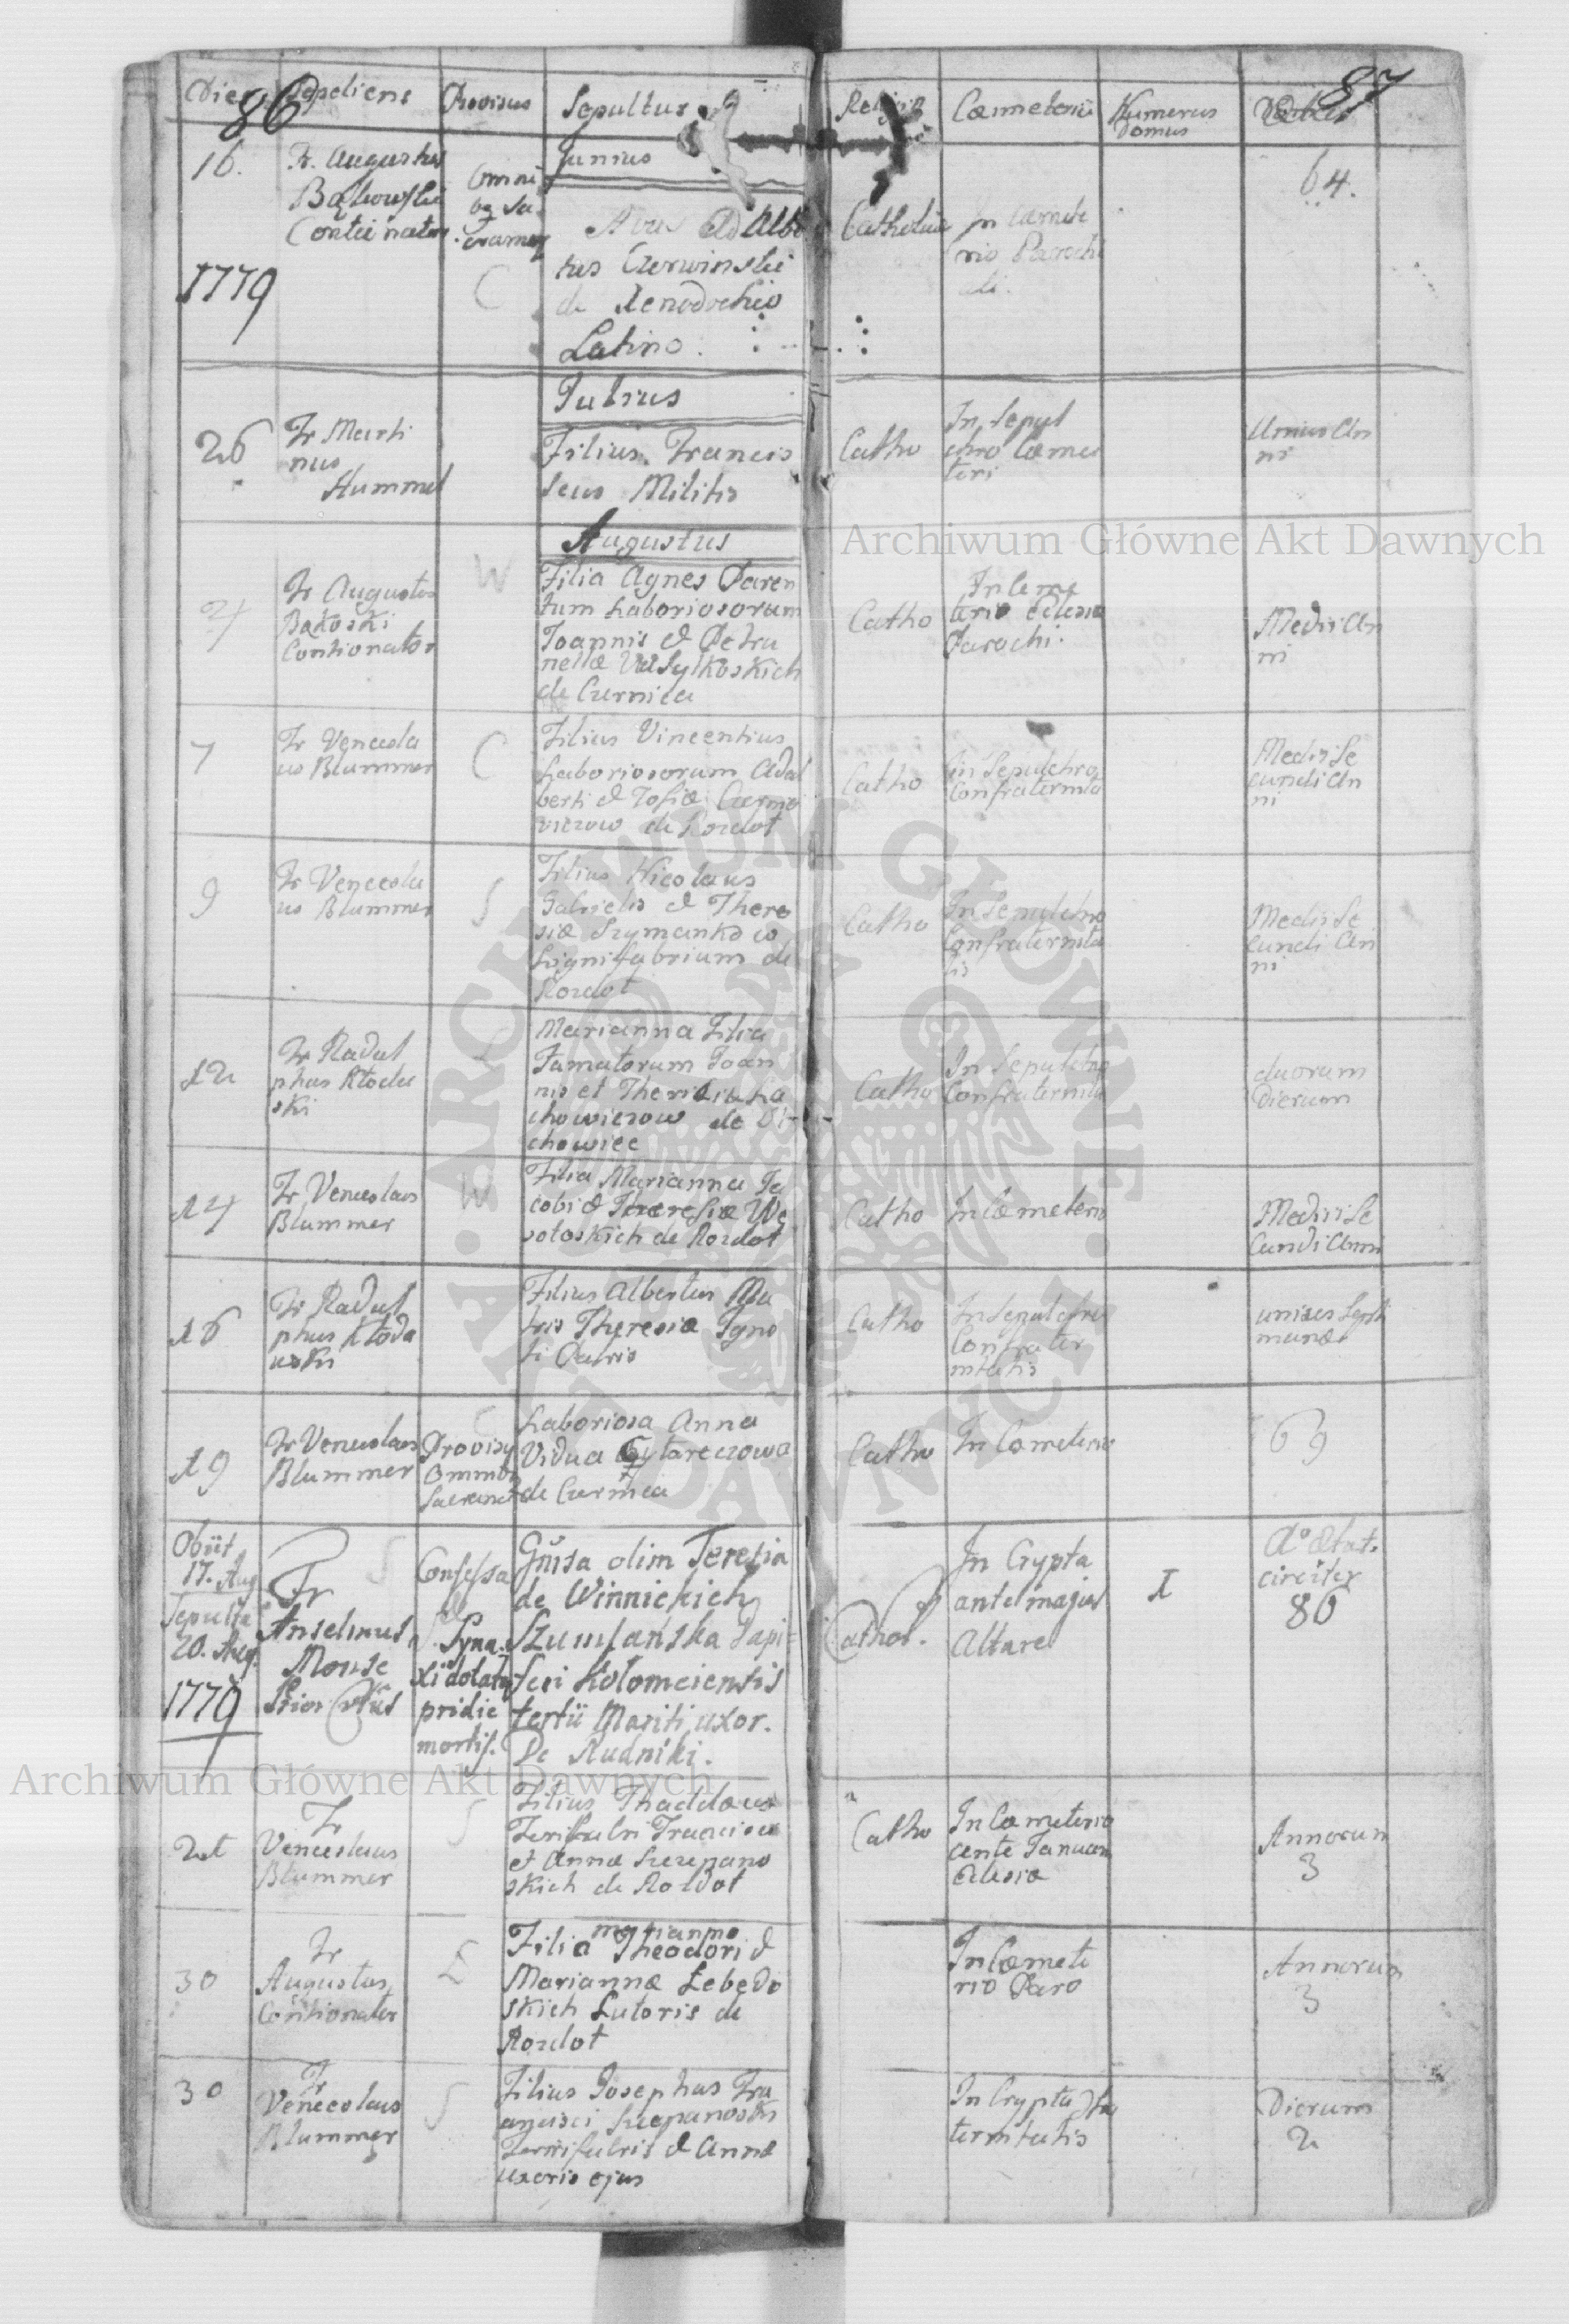 86
87
Dies
Sepeliens
Provisus
Sepultus
Religio
Cœmeterii
Numerus
Domus
16.
Fr. Augustus
Bąkowski
Contionator
1779
Omni
Sa
C
Junius
Adalbe
tus Czerwinski
de Xenodochio
Latino
Catholica
in Cœmete
rio Parochi
ali.
64.
Julius
26
Fr Marti
nus
Hummel
Filius Francis
scus Militis
Catho
In Sepul
chro Cœme
teri
Unius An
ni
Augustus
Archiwum Główne Akt Dawnych
Fr Augustus
Bakoski
Contionator
W
Filia Agnes Paren
tum Laboriosorum
Joannis et Petro
nellæ Wasylkoskich
de Czernica
Catho
In Ceme
terio Eclesiæ
Parochi.
Medii An
ni
7
Fr Vencesla
us Blummer
C
Filius Vincentius
Laboriosorum Adal
berti et Zofiæ
de Rozdot
Catho
in Sepulchro
Confraternita
Medii Se
cundi An
ni
9
Fr Vencesla
us Blummer
S
Filius Nicolaus
Gabrielis et There
siæ Szymanko w
Lignifabrium de
Rozdot
Catho
In Sepulchro
Confraternita
tis
Medii Se
cundi An
ni
12
Fr Radul
phus Kłoda
ski
L
Marianna Filia
Famatorum Joan
nis et
chowiczow de
chowiec
Catho
In Sepulchro
Confraternita
duorum
Dierum
14
Fr Venceslaus
Blummer
W
Filia Marianna Ja
cobi et Theresiæ We
sołoskich de Rozdot
Catho
In Cœmeterio
Medii Se
cundi Anni
16
Fr Radul
phus Kłoda
uski
Filius Albertus Ma
tris Theresiæ Igno
ti Patris
Catho
In Sepulchro
Confrater
nitatis
unius Septi
manæ
19
Fr Venceslaus
Blummer
Provisa
Omnibus
Sacramen
C
Laboriosa Anna
Vidua
de Czernica
Catho
In Cœmeterio
69
Obiit
17. Aug
Sepulta
20. Aug.
1779
Fr
Anselmus
Monse
Prior
S
Confessa
Syna
xi dolata
pridie
mortis.
Gnĩsa olim Teresia
de Winnickich
Szumlańska Dapi=
feri Kołomeiensis
tertii Mariti uxor.
De Rudniki.
Cathol.
In Crypta
ante majus
Altare
I
Aº ætat.
circiter
80
Archiwum Główne Akt Dawnych
21
Fr
Venceslaus
Blummer
S
Filius Thaddæus
Ferifabri Francisci
et Annæ Szczepano
skich de Rozdot
Catho
In Cœmeterio
ante Januam
Eclesiæ
Annorum
3
30
Fr
Augustus
Contionator
Ł
marianna
Filia Theodori et
Mariannæ Łebędo
skich Lutoris de
Rozdot
In Cœmete
rio Paro
Annorum
3
30
Fr
Venceslaus
Blummer
S
Filius Josephus Fra
ncisci Szczepanoski
Ferrifabris et Annæ
uxoris ejus
In Crypta
ternitatis
Dierum
2